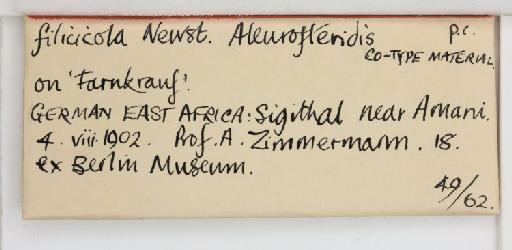 filicicola Newst. Aleurosteridis p.c.
CO-TYPE MATERIAL.
on 'Farnkrauf'.
GERMAN EAST AFRICA: Sigithal near Amani.
4. viii. 1902. Prof. A. Zimmermann. 18.
ex Berlin Museum.
49/62.